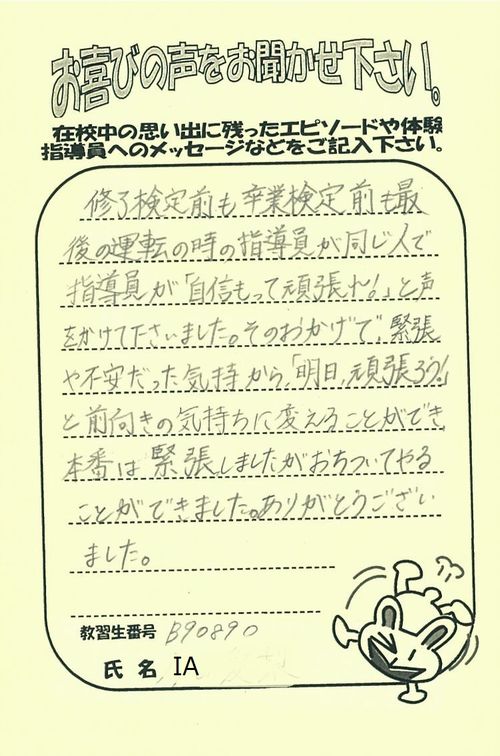 お喜びの声をお聞かせ下さい。
在校中の思い出に残ったエピソードや体験
指導員へのメッセージなどをご記入下さい。
修了検定前も卒業検定前も最
後の運転の時の指導員が同じ人で
指導員が「自信もって頑張れ!」と声
をかけて下さいました。そのおかげで、緊張
や不安だった気持から、「明日、頑張ろう!」
と前向きの気持ちに変えることができ
本番は緊張しましたがおちついてやる
ことができました。ありがとうござい
ました。
教習生番号 B90890
氏名 IA